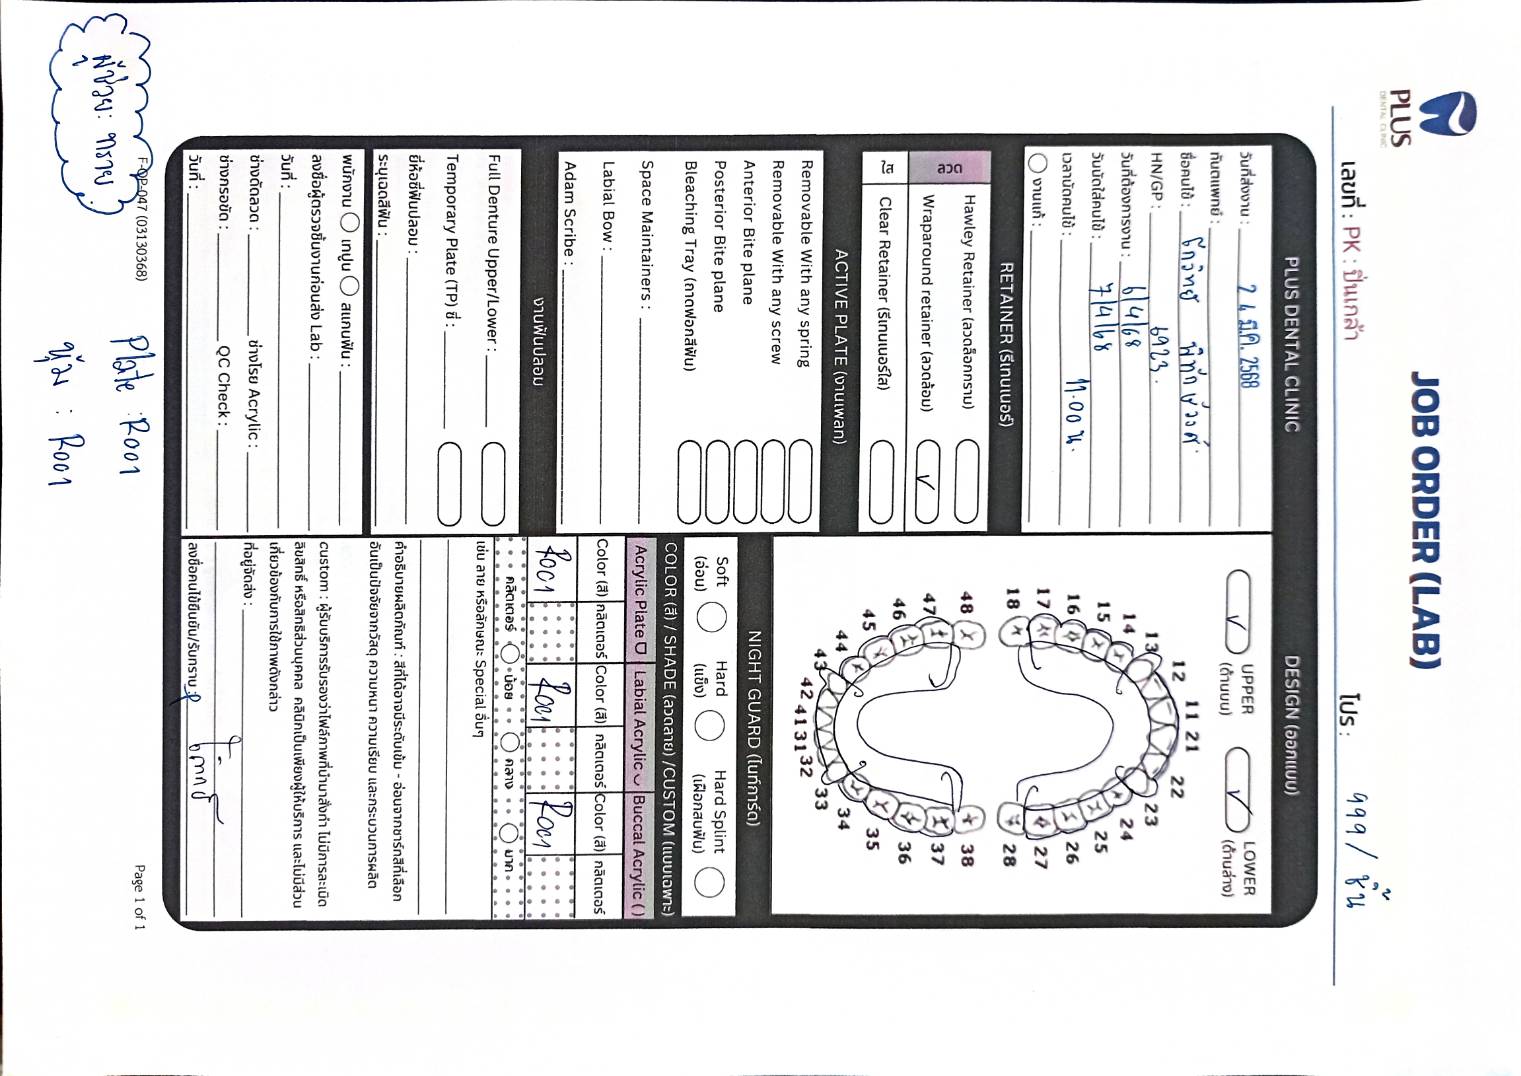 PLUS
DENTAL CLINIC
JOB ORDER (LAB)
เลขที่ : PK : ปิ่นเกล้า
โปร : 999 / ชิ้น
PLUS DENTAL CLINIC
วันที่ส่งงาน : 24 มี.ค. 2568
ทันตแพทย์ :
ชื่อคนไข้ :
HN/GP : 6923.
วันที่ต้องการงาน : 6/4/68
วันนัดใส่คนไข้ : 7/4/68
เวลานัดคนไข้ : 11.00 น.
งานแก้ :
RETAINER (รีเทนเนอร์)
ลวด
Hawley Retainer (ลวดล็อกกราม)
Wraparound retainer (ลวดล้อม) ✓
ใส
Clear Retainer (รีเทนเนอร์ใส)
ACTIVE PLATE (งานเพลท)
Removable With any spring
Removable With any screw
Anterior Bite plane
Posterior Bite plane
Bleaching Tray (ถาดฟอกสีฟัน)
Space Maintainers :
Labial Bow :
Adam Scribe :
งานฟันปลอม
Full Denture Upper/Lower :
Temporary Plate (TP) ซี่ :
ยี่ห้อซี่ฟันปลอม :
ระบุเฉดสีฟัน :
พนักงาน เทปูน สแกนฟัน :
ลงชื่อผู้ตรวจชิ้นงานก่อนส่ง Lab :
วันที่ :
ช่างดัดลวด : ช่างโรย Acrylic :
ช่างกรอขัด : QC Check :
วันที่ :
DESIGN (ออกแบบ)
✓ UPPER (ด้านบน)
✓ LOWER (ด้านล่าง)
18 17 16 15 14 13 12 11 21 22 23 24 25 26 27 28
48 47 46 45 44 43 42 41 31 32 33 34 35 36 37 38
NIGHT GUARD (ไนท์การ์ด)
Soft (อ่อน)
Hard (แข็ง)
Hard Splint (เฝือกสบฟัน)
COLOR (สี) / SHADE (ลวดลาย) /CUSTOM (แบบเฉพาะ)
Acrylic Plate Labial Acrylic Buccal Acrylic ( )
Color (สี) กลิตเตอร์ Color (สี) กลิตเตอร์ Color (สี) กลิตเตอร์
R001 R001 R001
กลิตเตอร์ น้อย กลาง มาก
เช่น ลาย หรือลักษณะ Special อื่นๆ
คำอธิบายผลิตภัณฑ์ : สีที่ได้อาจมีระดับเข้ม - อ่อนจากชาร์ทสีที่เลือก
อันเป็นปัจจัยจากวัสดุ ความหนา ความเรียบ และกระบวนการผลิต
custom : ผู้รับบริการรับรองว่าไฟล์ภาพที่นำมาสั่งทำ ไม่มีการละเมิด
ลิขสิทธิ์ หรือสิทธิส่วนบุคคล คลินิกเป็นเพียงผู้ให้บริการ และไม่มีส่วน
เกี่ยวข้องกับการใช้ภาพดังกล่าว
ที่อยู่จัดส่ง :
ลงชื่อคนไข้ยืนยัน/รับทราบ :
F-OP-047 (03130368)
Page 1 of 1
ผู้ช่วย : ทราย
Plate : R001
R001